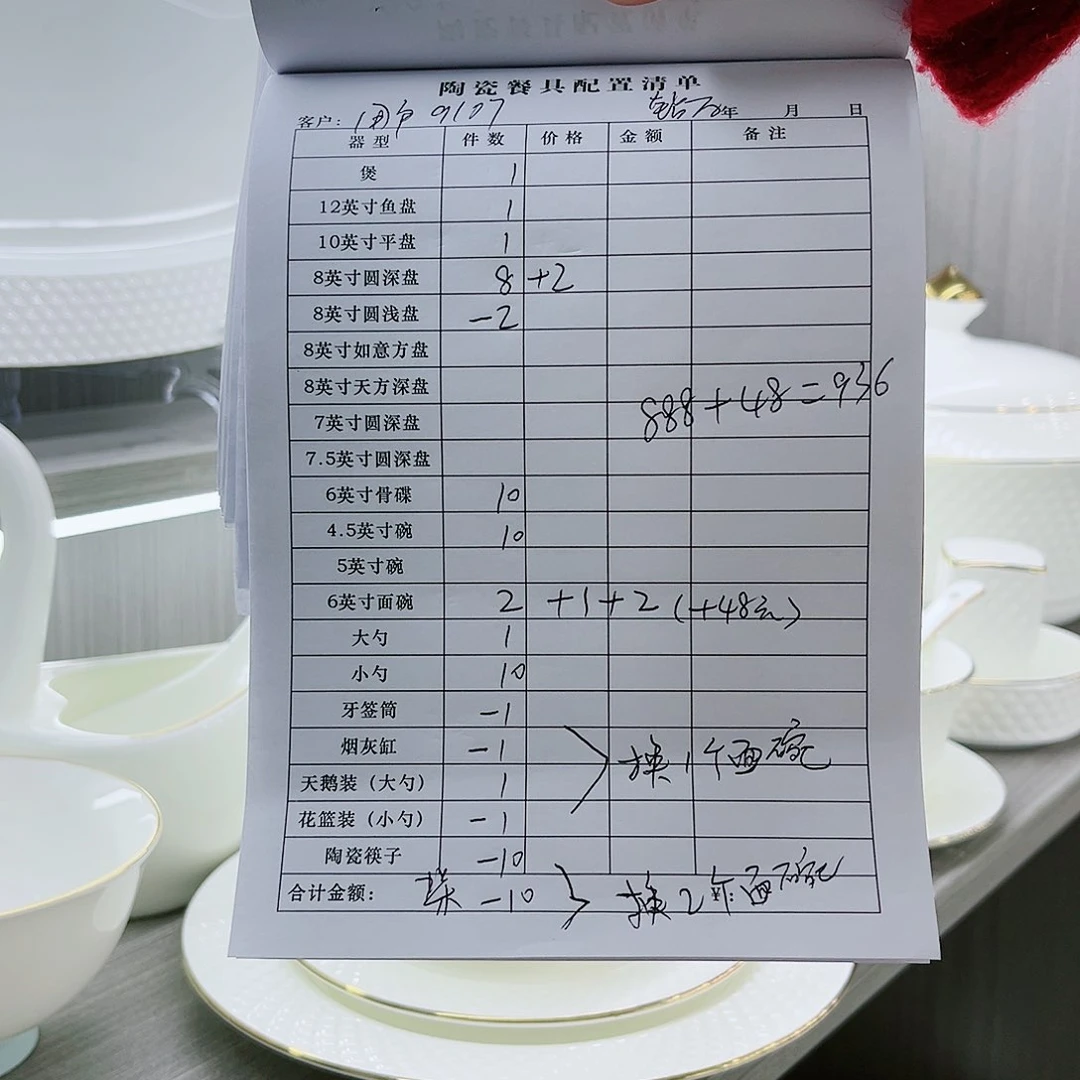 陶瓷餐具配置清单
客户：用户9107 钻石年 月 日
器型 件数 价格 金额 备注
煲 1
12英寸鱼盘 1
10英寸平盘 1
8英寸圆深盘 8 +2
8英寸圆浅盘 -2
8英寸如意方盘
8英寸天方深盘
888+48=936
7英寸圆深盘
7.5英寸圆深盘
6英寸骨碟 10
4.5英寸碗 10
5英寸碗
6英寸面碗 2 +1+2 (+48元)
大勺 1
小勺 10
牙签筒 -1
烟灰缸 -1 换1个面碗
天鹅装（大勺） 1
花篮装（小勺） -1
陶瓷筷子 -10
合计金额： -10 换2个面碗